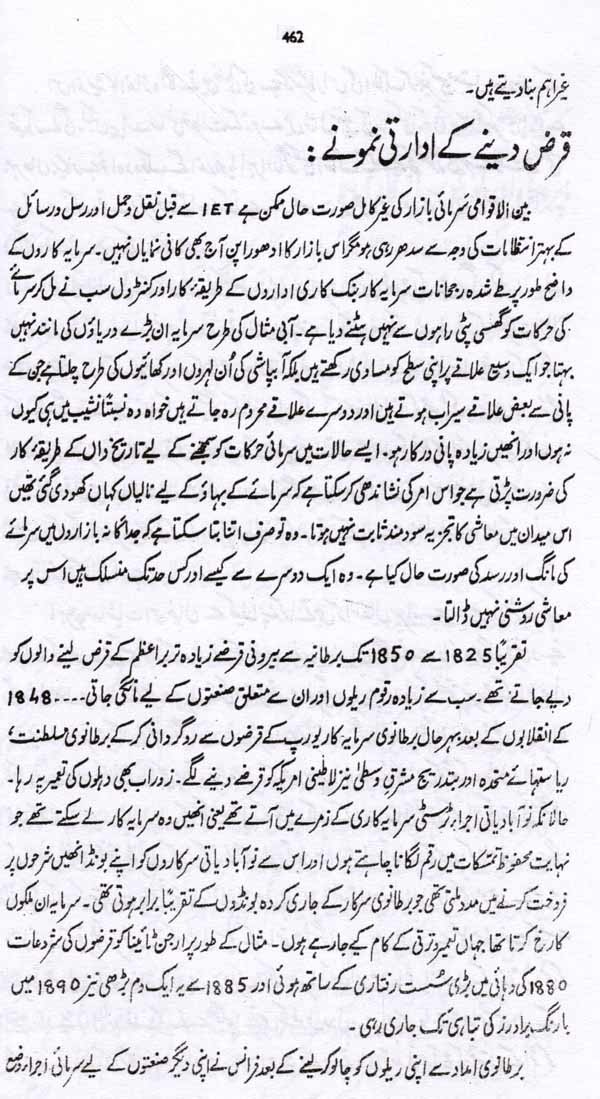 462
غیر اہم بنا دیتے ہیں ۔
قرض دینے کے ادارتی نمونے :
بین الاقوامی سرمائی بازار کی غیر کامل صورت حال ممکن ہے IET سے قبل نقل و حمل اور رسل و رسائل
کے بہتر انتظامات کی وجہ سے سدھر رہی ہو مگر اس بازار کا ادھوراپن آج بھی کافی نمایاں نہیں۔ سرمایہ کاروں کے
واضح طور پر طے شدہ رجحانات سرمایہ کار بنک کاری اداروں کے طریقۂ کار اور کنٹرول سب نے مل کر سرمائے
کی حرکات کو گھسی پٹی راہوں سے نہیں ہٹنے دیا ہے۔ آبی مثال کی طرح سرمایہ ان بڑے دریاؤں کی مانند نہیں
بہتا جو ایک وسیع علاقے پر اپنی سطح کو مساوی رکھتے ہیں بلکہ آبپاشی کی اُن نہروں اور کھائیوں کی طرح چلتا ہے جن کے
پانی سے بعض علاقے سیراب ہوتے ہیں اور دوسرے علاقے محروم رہ جاتے ہیں خواہ وہ نسبتاً نشیب میں ہی کیوں
نہ ہوں اور انھیں زیادہ پانی درکار ہو۔ ایسے حالات میں سرمائی حرکات کو سمجھنے کے لیے تاریخ داں کے طریقۂ کار
کی ضرورت پڑتی ہے جو اس امر کی نشاندھی کر سکتا ہے کہ سرمائے کے بہاؤ کے لیے نالیاں کہاں کھودی گئی تھیں
اس میدان میں معاشی کا تجزیہ سود مند ثابت نہیں ہوتا۔ وہ تو صرف اتنا بتا سکتا ہے کہ جداگانہ بازاروں میں سرمائے
کی مانگ اور رسد کی صورت حال کیا ہے۔ وہ ایک دوسرے سے کیسے اور کس حد تک منسلک ہیں اس پر
معاشی روشنی نہیں ڈالتا۔
تقریباً 1825 سے 1850 تک برطانیہ سے بیرونی قرضے زیادہ تر براعظم کے قرض لینے والوں کو
دیے جاتے تھے۔ سب سے زیادہ رقوم ریلوں اور ان سے متعلق صنعتوں کے لیے مانگی جاتی .... 1848
کے انقلابوں کے بعد بہر حال برطانوی سرمایہ کار یورپ کے قرضوں سے روگردانی کر کے برطانوی سلطنت،
ریاستہائے متحدہ اور بتدریج مشرق وسطیٰ نیز لاطینی امریکہ کو قرضے دینے لگے۔ زور اب بھی ریلوں کی تعمیر پر رہا۔
حالانکہ نو آبادیاتی اجراء ٹرسٹی سرمایہ کاری کے زمرے میں آتے تھے یعنی انھیں وہ سرمایہ کار لے سکتے تھے جو
نہایت محفوظ تمسکات میں رقم لگانا چاہتے ہوں اور اس سے نو آبادیاتی سرکاروں کو اپنے بونڈ انھیں شرحوں پر
فروخت کرنے میں مدد ملتی تھی جو برطانوی سرکار کے جاری کردہ بونڈوں کے تقریباً برابر ہوتی تھی۔ سرمایہ ان ملکوں
کا رخ کرتا تھا جہاں تعمیر و ترقی کے کام کیے جا رہے ہوں۔ مثال کے طور پر ارجن ٹائینا کو قرضوں کی شروعات
1880 کی دہائی میں بڑی سُست رفتاری کے ساتھ ہوئی اور 1885 سے یہ ایک دم بڑھی نیز 1890 میں
بارنگ برادرز کی تباہی تک جاری رہی۔
برطانوی امداد سے اپنی ریلوں کو چالو کر لینے کے بعد فرانس نے اپنی دیگر صنعتوں کے لیے سرمائی اجراء وضع